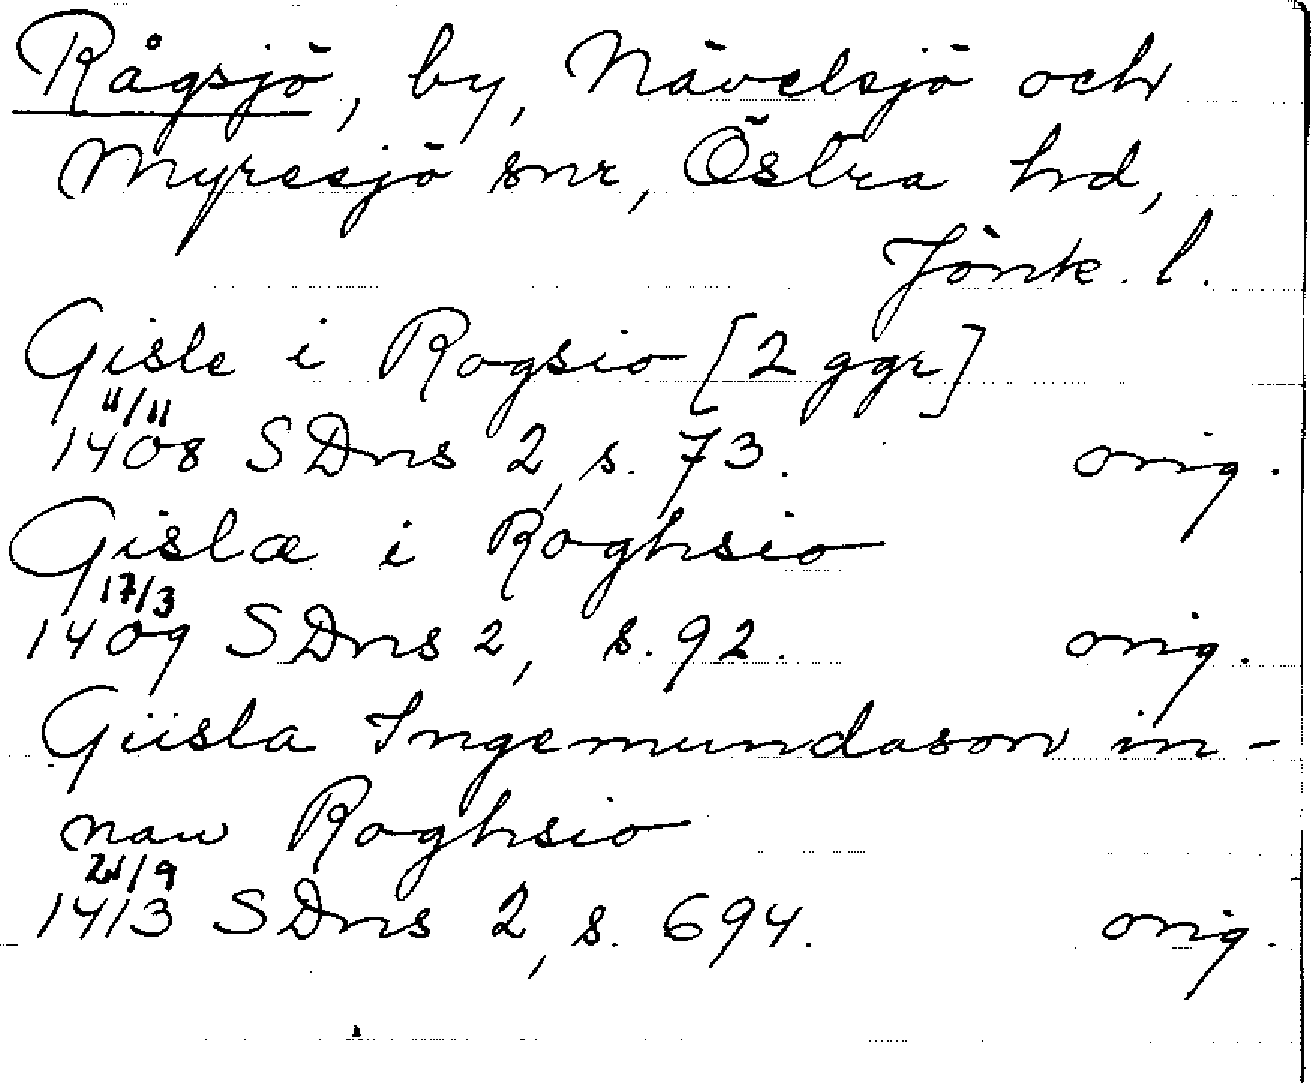 Rågsjö, by, Nävelsjö och
Myresjö snr, Östra hd,
Jönk. l.
Gisle i Rogsio [2 ggr]
11/11
1408 SDns 2, s. 73. orig.
Gislæ i Roghsio
17/3
1409 SDns 2, s. 92. orig.
Giisla Ingemundason in-
nan Roghsio
21/9
1413 SDns 2, s. 694. orig.